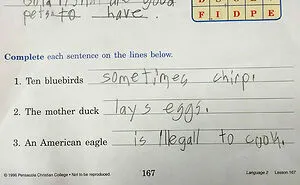 are good
pets to have.
F I D P E
Complete each sentence on the lines below.
1. Ten bluebirds sometimes chirp.
2. The mother duck lays eggs.
3. An American eagle is illegall to cook.
© 1996 Pensacola Christian College • Not to be reproduced. 167 Language 2 Lesson 167